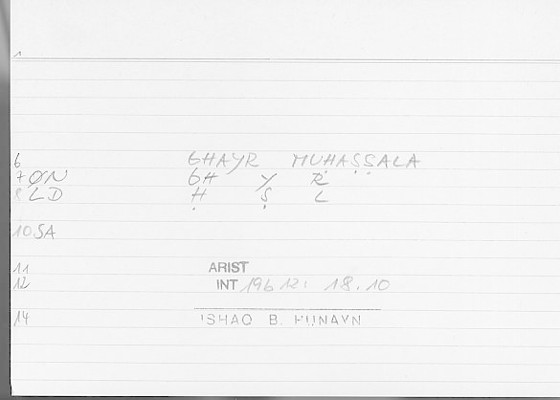 1
6 GHAYR MUHAṢṢALA
7 ØN GH Y R
8 LD Ḥ Ṣ L
10 SA
11 ARIST
12 INT 196 12: 18.10
14 ISHAQ B. HUNAYN